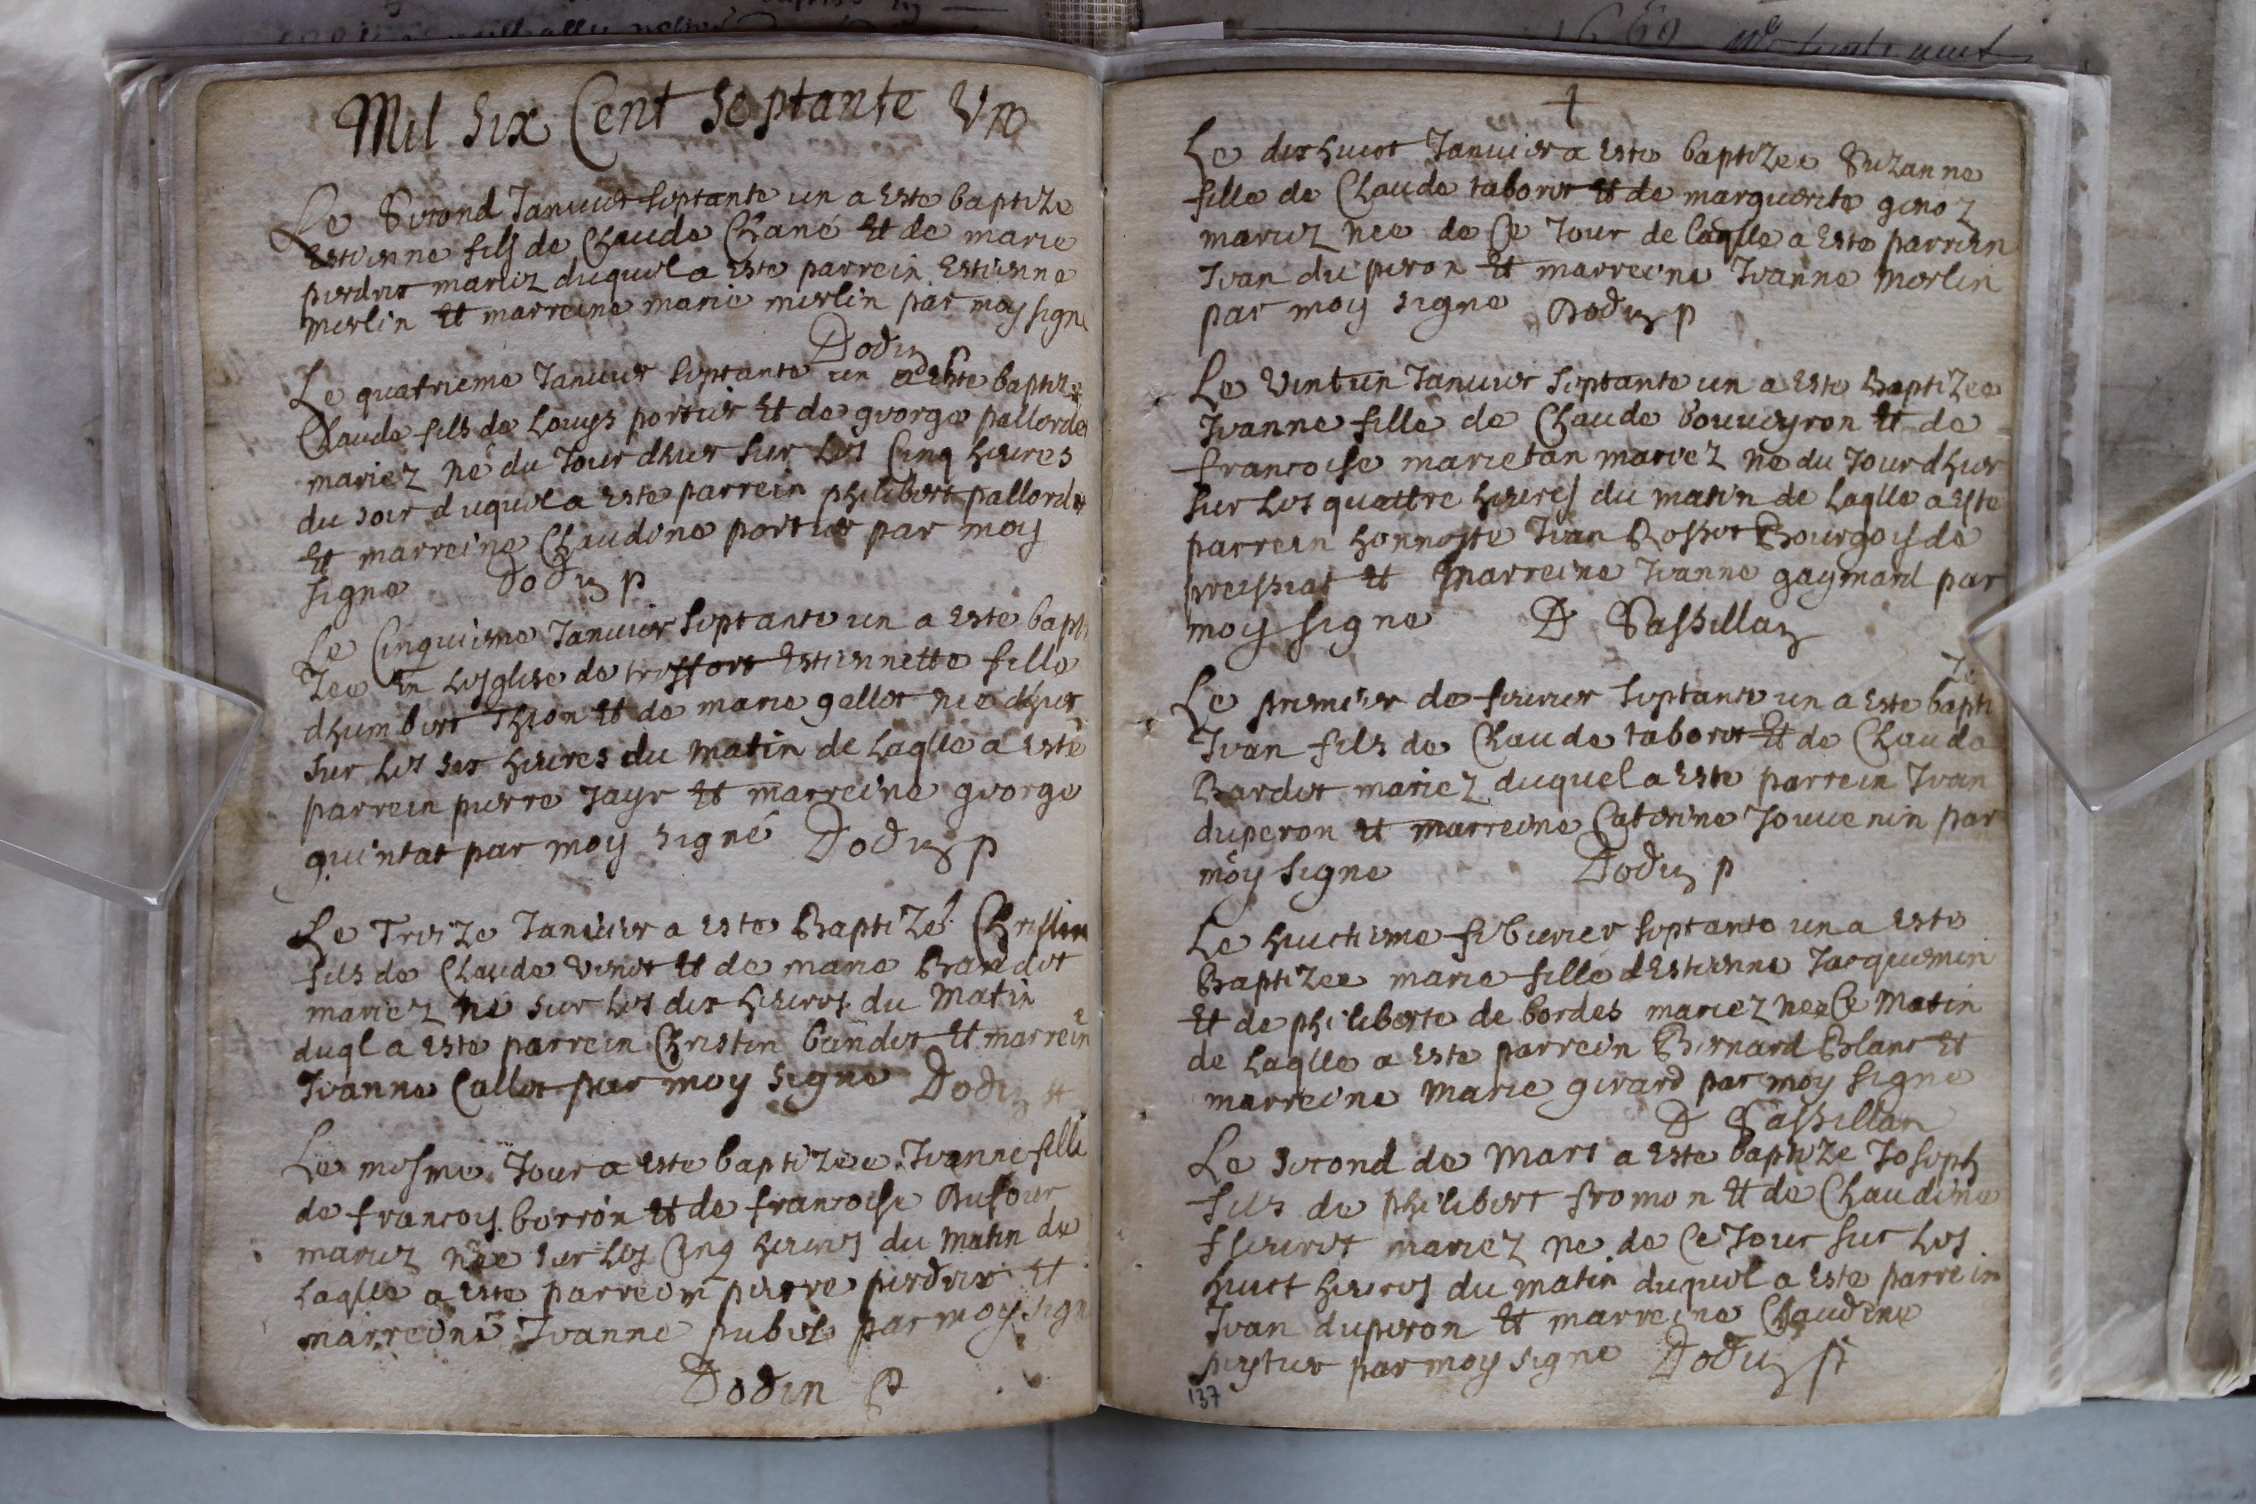 Mil six Cent septante Un
Le Second Januier septante un a este baptize
Estienne fils de Claude Chané et de marie
perdrix mariez duquel a este parrein Estienne
merlin et marreine marie merlin par moy signe
Dodin p
Le quatrieme Januier septante un a este baptize
Claude fils de Louys portier et de george pallorde
mariez né du Jour dhier sur les Cinq heures
du soir duquel a este parrein philibert pallorde
et marreine Claudine portier par moy
signe Dodin p
Le Cinquieme Januier septante un a este bapti
zee en lesglise de treffort Estiennette fille
dhumbert Thion et de marie gellet née dhier
sur les six heures du matin de laqlle a este
parrein pierre Jayr et marreine george
quintat par moy signé Dodin p
Le Treize Januier a este Baptizé Christin
fils de Claude Venet et de marie Bandet
mariez né sur les dix heures du Matin
duql a este parrein Christin bandet et marreine
Jeanne Callet par moy signe Dodin p
Le mesme Jour a este baptizee Jeanne fille
de francoys borron et de francoise Dufour
mariez née sur les Cinq heures du Matin de
laqlle a este parrein pierre perdrix et
marreine Jeanne pubel par moy signe
Dodin p
Le dixhuict Januier a este baptizee Suzanne
fille de Claude taboret et de marguerite genoz
mariez nee de Ce Jour de laqlle a este parrein
Jean du peron et marreine Jeanne Merlin
par moy signe Dodin p
Le Vint un Januier septante un a este Baptizee
Jeanne fille de Claude bouueyron et de
francoise marietan mariez né du Jour dhier
sur les quattre heures du matin de laqlle a este
parrein honneste Jean Rosset Bourgoys de
preissiat et Marreine Jeanne gaymard par
moy signe D Sassillan
Le premier de feurier septante un a este bapti
zé
Jean fils de Claude taboret et de Claude
Bardet mariez duquel a este parrein Jean
duperon et marreine Caterine Jouuenin par
moy signe Dodin p
Le huictieme feburier septante un a este
Baptizee marie fille dEstienne Jacquemin
et de philiberte de bordes mariez nee Ce Matin
de laqlle a este parrein Bernard Blanc et
marreine Marie girard par moy signe
D Sassillan
Le second de Mars a este baptize Joseph
fils de philibert fromon et de Claudine
mariez ne de Ce Jour sur les
huict heures du matin duquel a este parrein
Jean duperon et marreine Claudine
par moy signe Dodin p
137